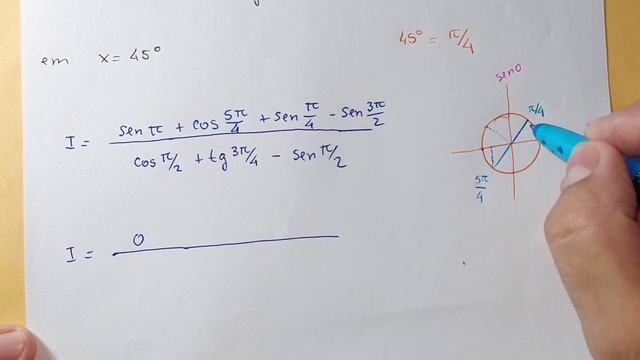 em x = 45°
45° = π/4
senθ
I = (sen π + cos 5π/4 + sen π/4 - sen 3π/2) / (cos π/2 + tg 3π/4 - sen π/2)
π/4
5π/4
I = 0